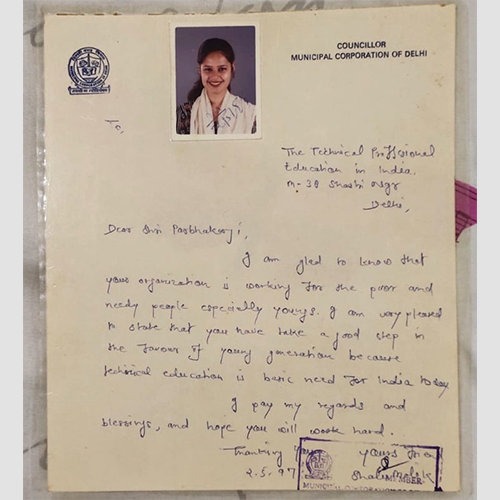 COUNCILLOR
MUNICIPAL CORPORATION OF DELHI
To,
The Technical Proffssional
Education in India.
M-38 Shastri Nagr
Delhi,
Dear Shri Parbhakerji,
I am gled to know that
your organization is working for the poor and
needy people especially youngs. I am very pleased
to state that you have take a good step in
the favour of young generation because
technical education is basic need for India today
I pay my regards and
blessings, and hope you will work hard.
Thanking You
Yours
2.5.97
MEMBER
MUNICIPAL CORPORATION